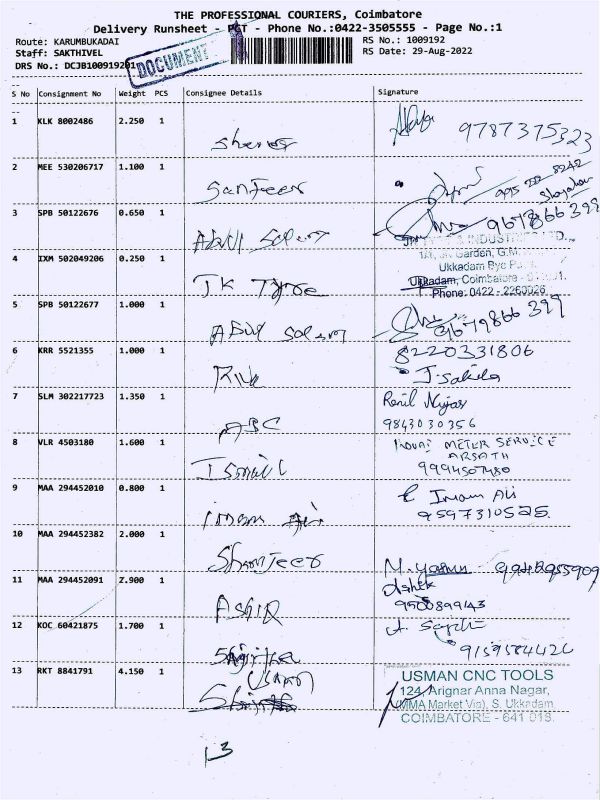 THE PROFESSIONAL COURIERS, Coimbatore
Delivery Runsheet - PCT - Phone No.:0422-3505555 - Page No.:1
Route: KARUMBUKADAI RS No.: 1009192
Staff: SAKTHIVEL RS Date: 29-Aug-2022
DRS No.: DCJB100919201
DOCUMENT
S No Consignment No Weight PCS Consignee Details Signature
1 KLK 8002486 2.250 1
9787375323
2 MEE 530206717 1.100 1
Sanjeer
3 SPB 50122676 0.650 1
Abdul Salem 9679866399
4 IXM 502049206 0.250 1
JK Tyre
Ukkadam Bye
Ukkadam, Coimbatore
Phone: 0422 - 2260026
5 SPB 50122677 1.000 1
Abdul Salem
6 KRR 5521355 1.000 1
8220331806
J. Sakila
7 SLM 302217723 1.350 1
ABC
9843030356
8 VLR 4503180 1.600 1
Ismail
KOVAI METER SERVICE
ARSATH
9994507480
9 MAA 294452010 0.800 1
Imam Ali
Imam Ali
9597310525
10 MAA 294452382 2.000 1
Shanjeer
11 MAA 294452091 2.900 1
Ashiq
Ashik
9900899143
12 KOC 60421875 1.700 1
9159584426
13 RKT 8841791 4.150 1
Usman
USMAN CNC TOOLS
124, Arignar Anna Nagar,
(MMA Market Via), S. Ukkadam
COIMBATORE - 641 018.
13